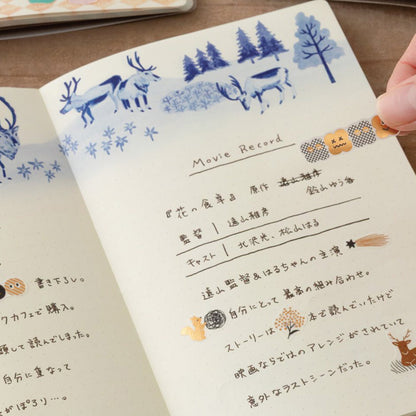 書き下ろし。
クカフェで購入。
頭して読んでしまった。
自分に重なって
がぽろり…。
Movie Record
『花の食卓』 原作 遠山雅彦
鈴山ゆう
監督 | 遠山雅彦
キャスト | 北沢光、松山はる
遠山監督&はるちゃんの主演
自分にとって 最高の組み合わせ。
ストーリーは 本で読んでいたけど
映画ならではのアレンジがされていて
意外なラストシーンだった。